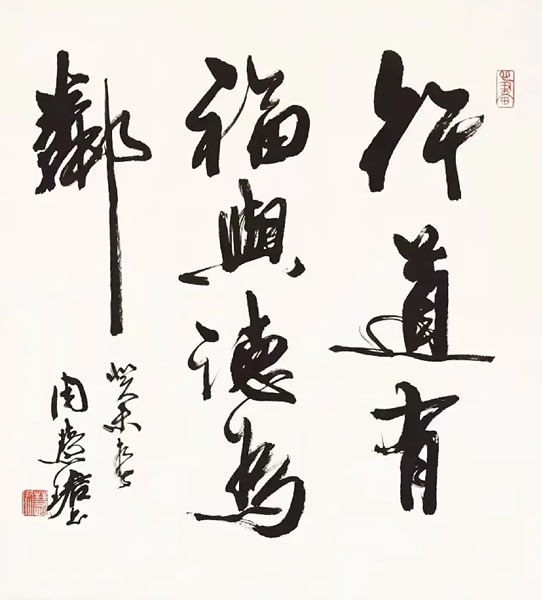 行道有
福與德為
鄰
癸未春
周慧珺书